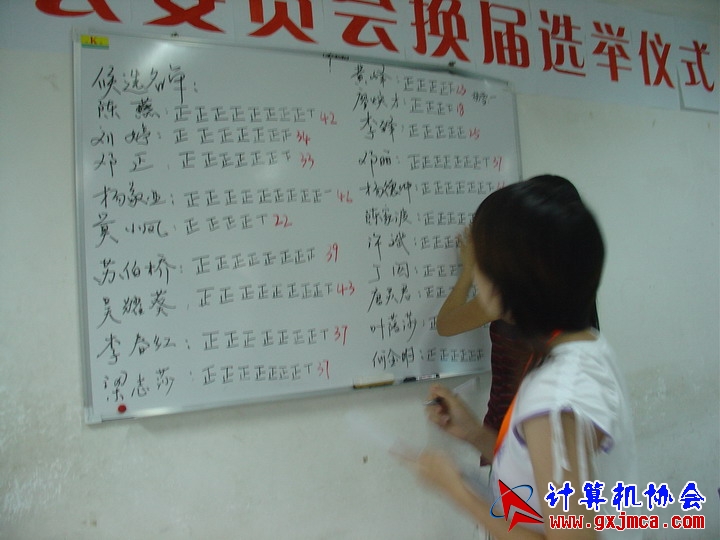 委员会换届选举仪式
K
候选名单:
陈燕:正正正正正正正正丅 42
刘婷:正正正正正正 34
邓正:正正正正正正 33
杨敬业:正正正正正正正正正一 46
莫小凤:正正正正丅 22
苏伯桥:正正正正正正正 39
吴耀葵:正正正正正正正正 43
李春红:正正正正正正正丅 37
梁志莎:正正正正正正正丅 37
黄峰:正正正正 23
正正正 18
李锋:正正正正正 25
邓丽:正正正正正正正丅 37
正正正正正正
陈家波:正正正正
许斌:正正正正
丁园:正正正
正正
叶蓓莎:正
何金明:正正正正正正
计算机协会
www.gxjmca.com